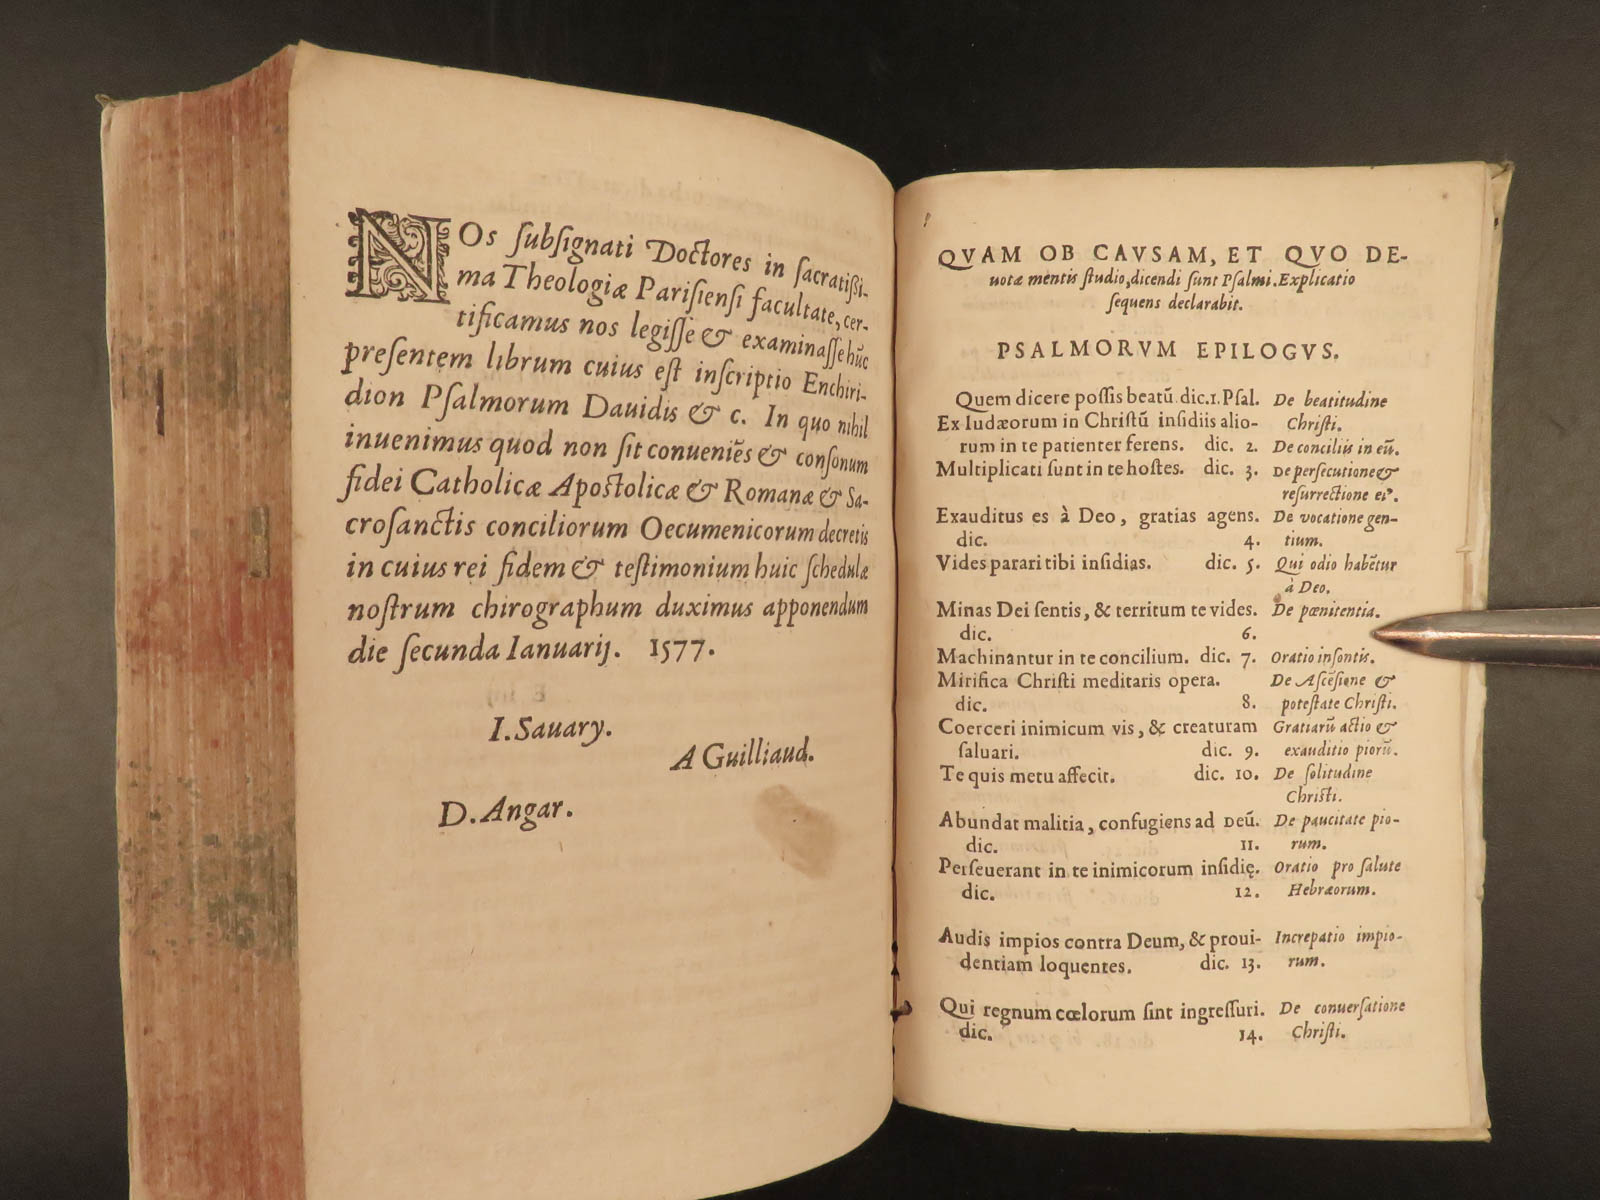 NOs ſubſignati Doctores in ſacratißi-
ma Theologiæ Pariſienſi facultate, cer-
tificamus nos legiſſe & examinaſſe hūc
preſentem librum cuius eſt inſcriptio Enchiri-
dion Pſalmorum Dauidis & c. In quo nihil
inuenimus quod non ſit conueniẽs & conſonum
fidei Catholicæ Apoſtolicæ & Romanæ & Sa-
croſanctis conciliorum Oecumenicorum decretis
in cuius rei fidem & teſtimonium huic ſchedulæ
noſtrum chirographum duximus apponendum
die ſecunda Ianuarij. 1577.
I. Sauary.
A Guilliaud.
D. Angar.
QVAM OB CAVSAM, ET QVO DE-
uotæ mentis ſtudio, dicendi ſunt Pſalmi. Explicatio
ſequens declarabit.
PSALMORVM EPILOGVS.
Quem dicere poſſis beatū. dic. 1. Pſal. De beatitudine
Ex Iudæorum in Chriſtū inſidiis alio- Chriſti.
rum in te patienter ferens. dic. 2. De conciliis in eū.
Multiplicati ſunt in te hoſtes. dic. 3. De perſecutione &
reſurrectione ei⁹.
Exauditus es à Deo, gratias agens. De vocatione gen-
dic. 4. tium.
Vides parari tibi inſidias. dic. 5. Qui odio habẽtur
à Deo.
Minas Dei ſentis, & territum te vides. De pœnitentia.
dic. 6.
Machinantur in te concilium. dic. 7. Oratio inſontis.
Mirifica Chriſti meditaris opera. De Aſcẽſione &
dic. 8. poteſtate Chriſti.
Coerceri inimicum vis, & creaturam Gratiarū actio &
ſaluari. dic. 9. exauditio piorū.
Te quis metu affecit. dic. 10. De ſolitudine
Chriſti.
Abundat malitia, confugiens ad DEŪ. De paucitate pio-
dic. 11. rum.
Perſeuerant in te inimicorum inſidię. Oratio pro ſalute
dic. 12. Hebræorum.
Audis impios contra Deum, & proui- Increpatio impio-
dentiam loquentes. dic. 13. rum.
Qui regnum cœlorum ſint ingreſſuri. De conuerſatione
dic. 14. Chriſti.